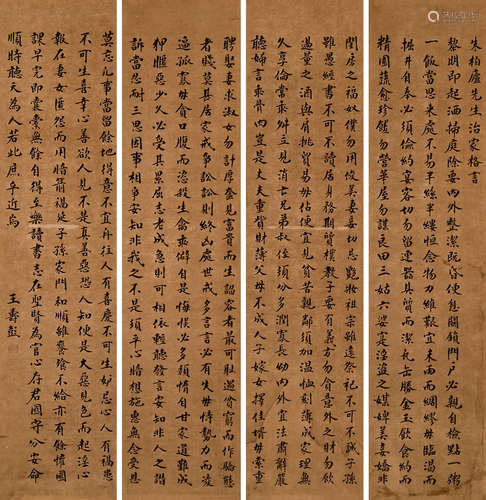 朱柏廬先生治家格言
黎明即起洒掃庭除要內外整潔既昏便息關鎖門戶必親自檢點一粥
一飯當思來處不易半絲半縷恒念物力維艱宜未雨而綢繆毋臨渴而
掘井自奉必須儉約宴客切勿留連器具質而潔瓦缶勝金玉飲食約而
精園蔬愈珍饈勿營華屋勿謀良田三姑六婆是淫盜之媒婢美妾嬌非
閨房之福奴僕勿用俊美妻妾切忌艷妝祖宗雖遠祭祀不可不誠子孫
雖愚經書不可不讀居身務期質樸教子要有義方勿貪意外之財勿飲
過量之酒與肩挑貿易毋枯便宜見貧苦親鄰須加温恤刻薄成家理無
久享倫常乖舛立見消亡兄弟叔侄須分多潤寡長幼內外宜法肅辭嚴
聽婦言乖骨肉豈是丈夫重貲財薄父母不成人子嫁女擇佳壻毋索重
聘娶妻求淑女勿計厚奩見富貴而生諂容者最可耻遇貧窮而作驕態
者賤莫甚居家戒爭訟訟則終凶處世戒多言言必有失毋恃勢力而凌
逼孤寡毋貪口腹而恣殺生禽乖僻自是悔悞必多頹惰自甘家道難成
狎暱惡少久必受其累屈志老成急則可相依輕聽發言安知非人之譖
訴當忍耐三思因事相爭安知非我之不是須平心暗想施惠無念受恩
莫忘凡事當留餘地得意不宜再往人有喜慶不可生妬忌心人有禍患
不可生喜幸心善欲人見不是真善惡恐人知便是大惡見色而起淫心
報在妻女匿怨而用暗箭禍延子孫家門和順雖饔飧不給亦有餘懽國
課早完即囊橐無餘自得至樂讀書志在聖賢為官心存君國守分安命
順時聽天為人若此庶乎近焉
王壽彭